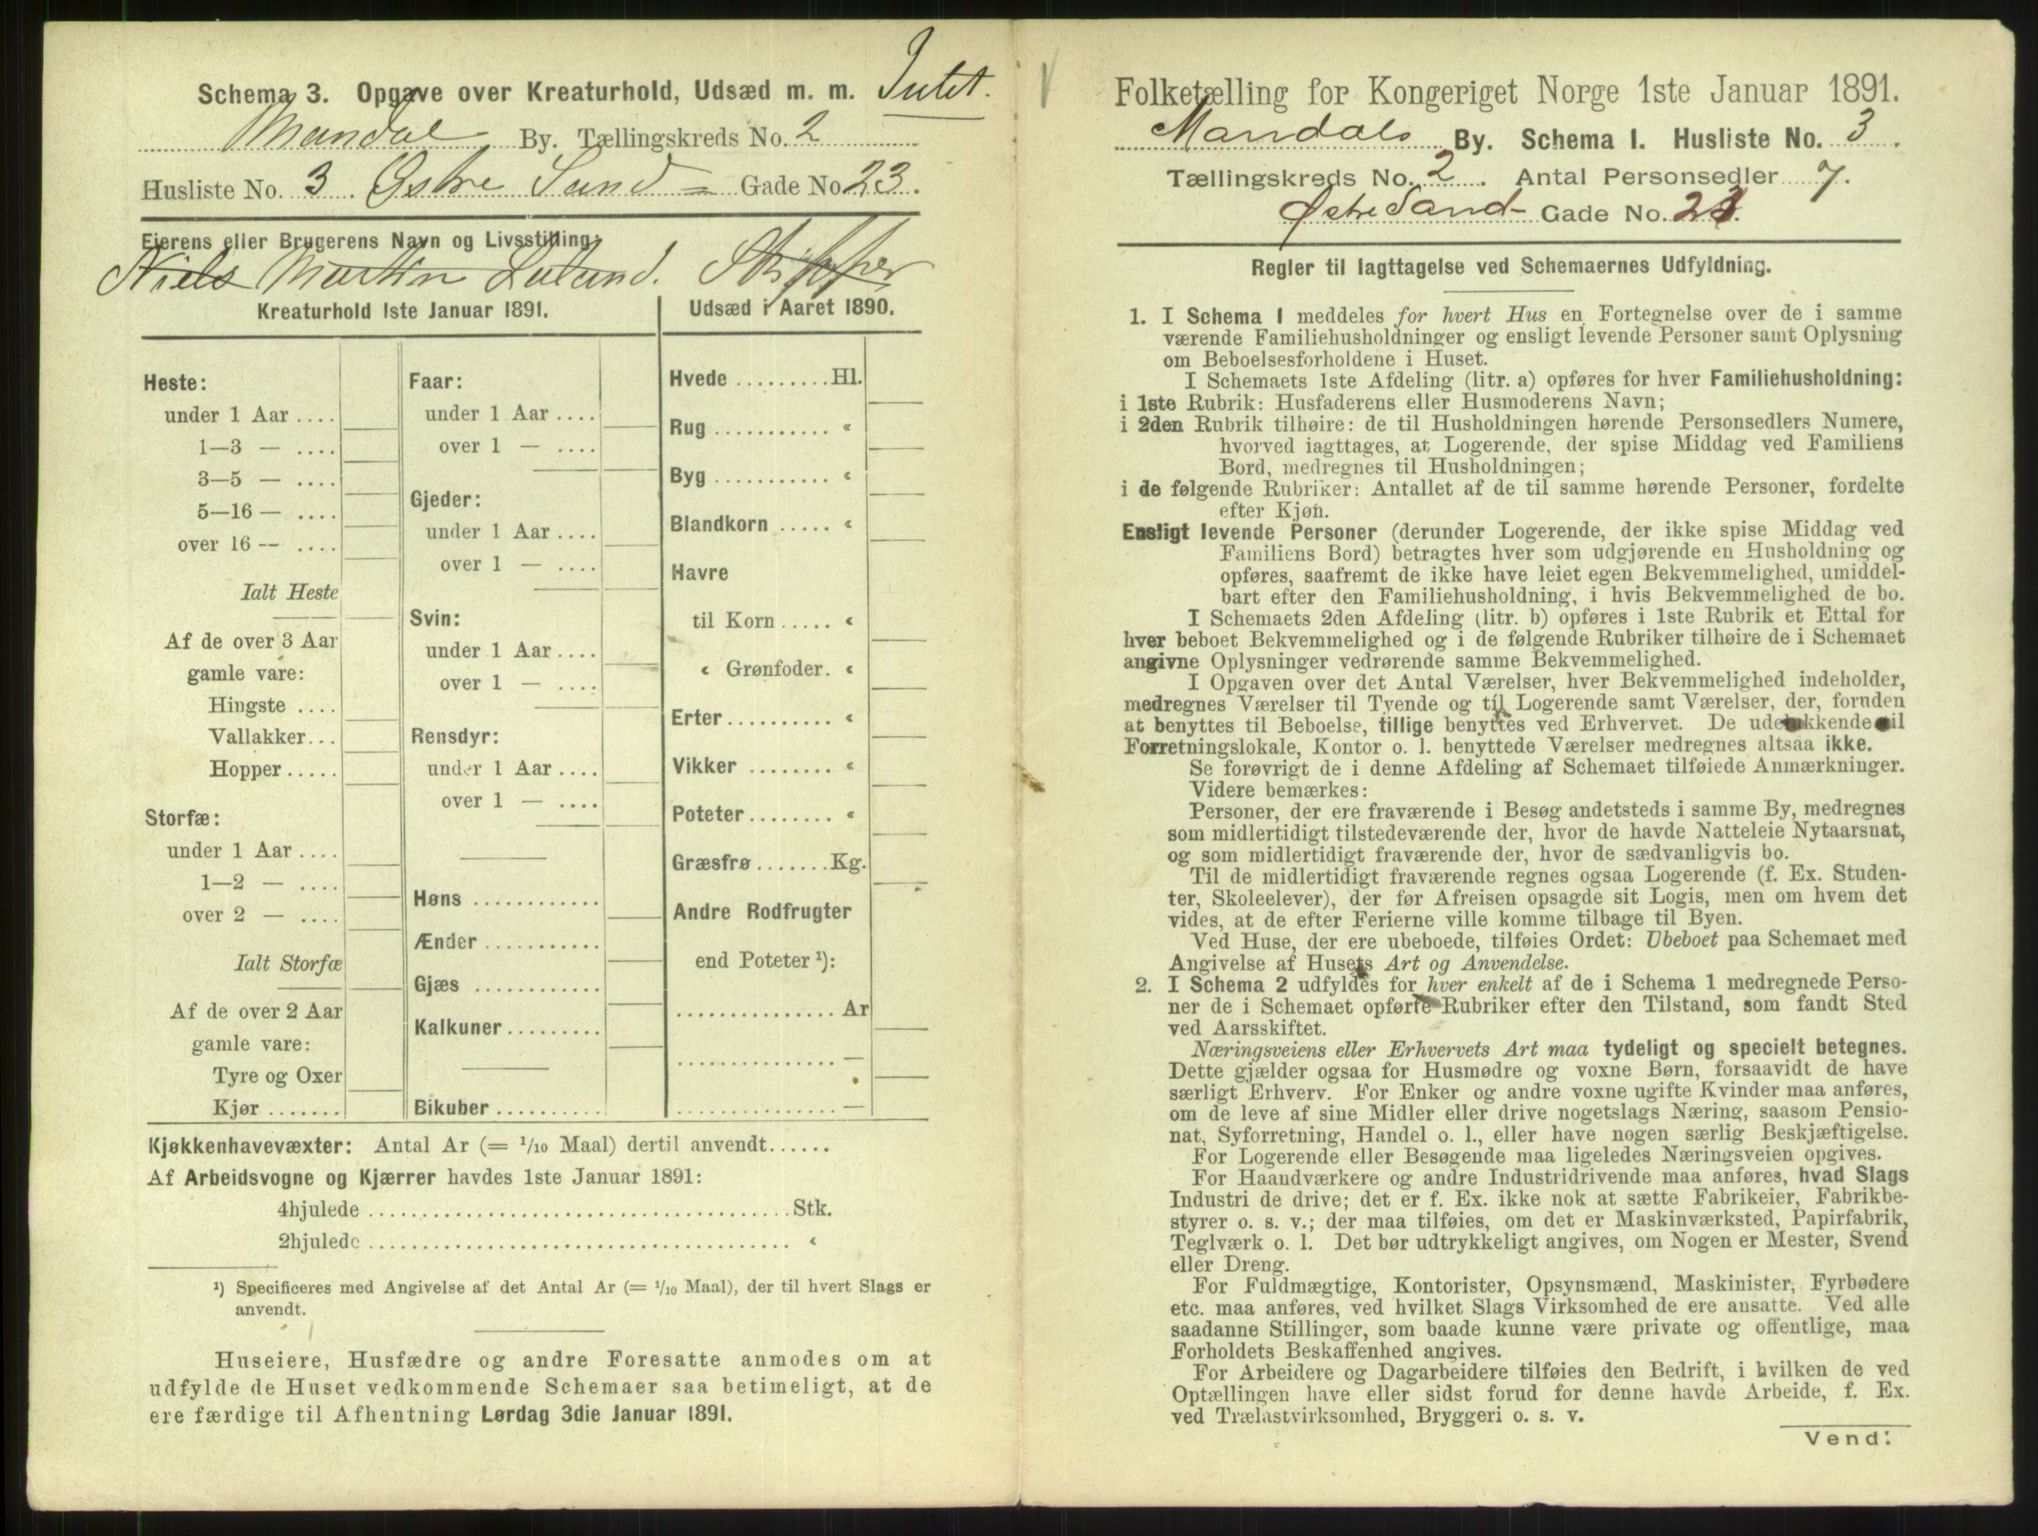 Schema 3. Opgave over Kreaturhold, Udsæd m. m. Intet.
Mandal By. Tællingskreds No. 2
Husliste No. 3. Østre Sund = Gade No 23.
Eierens eller Brugerens Navn og Livsstilling:
Niels Martin Luland. Skipper
Kreaturhold 1ste Januar 1891.
Udsæd i Aaret 1890.
Heste:
under 1 Aar ....
1—3 — ....
3—5 — ....
5—16 — ....
over 16 — ....
Ialt Heste
Af de over 3 Aar
gamle vare:
Hingste ....
Vallakker...
Hopper.....
Storfæ:
under 1 Aar ....
1—2 — ....
over 2 — ....
Ialt Storfæ
Af de over 2 Aar
gamle vare:
Tyre og Oxer
Kjør .......
Faar:
under 1 Aar ....
over 1 — ....
Gjeder:
under 1 Aar ....
over 1 — ....
Svin:
under 1 Aar ....
over 1 — ....
Rensdyr:
under 1 Aar ....
over 1 — ....
Høns ............
Ænder ...........
Gjæs ............
Kalkuner.........
Bikuber ..........
Hvede .........Hl.
Rug ........... «
Byg ........... «
Blandkorn ..... «
Havre
til Korn ..... «
« Grønfoder. «
Erter.......... «
Vikker ........ «
Poteter........ «
Græsfrø .......Kg.
Andre Rodfrugter
end Poteter ¹):
...............Ar
............... —
............... —
Kjøkkenhavevæxter: Antal Ar (= 1/10 Maal) dertil anvendt......
Af Arbeidsvogne og Kjærrer havdes 1ste Januar 1891:
4hjulede ........................................Stk.
2hjulede ........................................ «
¹) Specificeres med Angivelse af det Antal Ar (= 1/10 Maal), der til hvert Slags er
anvendt.
Huseiere, Husfædre og andre Foresatte anmodes om at
udfylde de Huset vedkommende Schemaer saa betimeligt, at de
ere færdige til Afhentning Lørdag 3die Januar 1891.
Folketælling for Kongeriget Norge 1ste Januar 1891.
Mandals By. Schema 1. Husliste No. 3.
Tællingskreds No. 2. Antal Personsedler 7.
Østre Sand Gade No. 23.
Regler til Iagttagelse ved Schemaernes Udfyldning.
1. I Schema 1 meddeles for hvert Hus en Fortegnelse over de i samme
værende Familiehusholdninger og ensligt levende Personer samt Oplysning
om Beboelsesforholdene i Huset.
I Schemaets 1ste Afdeling (litr. a) opføres for hver Familiehusholdning:
i 1ste Rubrik: Husfaderens eller Husmoderens Navn;
i 2den Rubrik tilhøire: de til Husholdningen hørende Personsedlers Numere,
hvorved iagttages, at Logerende, der spise Middag ved Familiens
Bord, medregnes til Husholdningen;
i de følgende Rubriker: Antallet af de til samme hørende Personer, fordelte
efter Kjøn.
Ensligt levende Personer (derunder Logerende, der ikke spise Middag ved
Familiens Bord) betragtes hver som udgjørende en Husholdning og
opføres, saafremt de ikke have leiet egen Bekvemmelighed, umiddel-
bart efter den Familiehusholdning, i hvis Bekvemmelighed de bo.
I Schemaets 2den Afdeling (litr. b) opføres i 1ste Rubrik et Ettal for
hver beboet Bekvemmelighed og i de følgende Rubriker tilhøire de i Schemaet
angivne Oplysninger vedrørende samme Bekvemmelighed.
I Opgaven over det Antal Værelser, hver Bekvemmelighed indeholder,
medregnes Værelser til Tyende og til Logerende samt Værelser, der, foruden
at benyttes til Beboelse, tillige benyttes ved Erhvervet. De udelukkende til
Forretningslokale, Kontor o. l. benyttede Værelser medregnes altsaa ikke.
Se forøvrigt de i denne Afdeling af Schemaet tilføiede Anmærkninger.
Videre bemærkes:
Personer, der ere fraværende i Besøg andetsteds i samme By, medregnes
som midlertidigt tilstedeværende der, hvor de havde Natteleie Nytaarsnat,
og som midlertidigt fraværende der, hvor de sædvanligvis bo.
Til de midlertidigt fraværende regnes ogsaa Logerende (f. Ex. Studen-
ter, Skoleelever), der før Afreisen opsagde sit Logis, men om hvem det
vides, at de efter Ferierne ville komme tilbage til Byen.
Ved Huse, der ere ubeboede, tilføies Ordet: Ubeboet paa Schemaet med
Angivelse af Husets Art og Anvendelse.
2. I Schema 2 udfyldes for hver enkelt af de i Schema 1 medregnede Perso-
ner de i Schemaet opførte Rubriker efter den Tilstand, som fandt Sted
ved Aarsskiftet.
Næringsveiens eller Erhvervets Art maa tydeligt og specielt betegnes.
Dette gjælder ogsaa for Husmødre og voxne Børn, forsaavidt de have
særligt Erhverv. For Enker og andre voxne ugifte Kvinder maa anføres,
om de leve af sine Midler eller drive nogetslags Næring, saasom Pensio-
nat, Syforretning, Handel o. l., eller have nogen særlig Beskjæftigelse.
For Logerende eller Besøgende maa ligeledes Næringsveien opgives.
For Haandværkere og andre Industridrivende maa anføres, hvad Slags
Industri de drive; det er f. Ex. ikke nok at sætte Fabrikeier, Fabrikbe-
styrer o. s. v.; der maa tilføies, om det er Maskinværksted, Papirfabrik,
Teglværk o. l. Det bør udtrykkeligt angives, om Nogen er Mester, Svend
eller Dreng.
For Fuldmægtige, Kontorister, Opsynsmænd, Maskinister, Fyrbødere
etc. maa anføres, ved hvilket Slags Virksomhed de ere ansatte. Ved alle
saadanne Stillinger, som baade kunne være private og offentlige, maa
Forholdets Beskaffenhed angives.
For Arbeidere og Dagarbeidere tilføies den Bedrift, i hvilken de ved
Optællingen have eller sidst forud for denne havde Arbeide, f. Ex.
ved Trælastvirksomhed, Bryggeri o. s. v.
Vend!